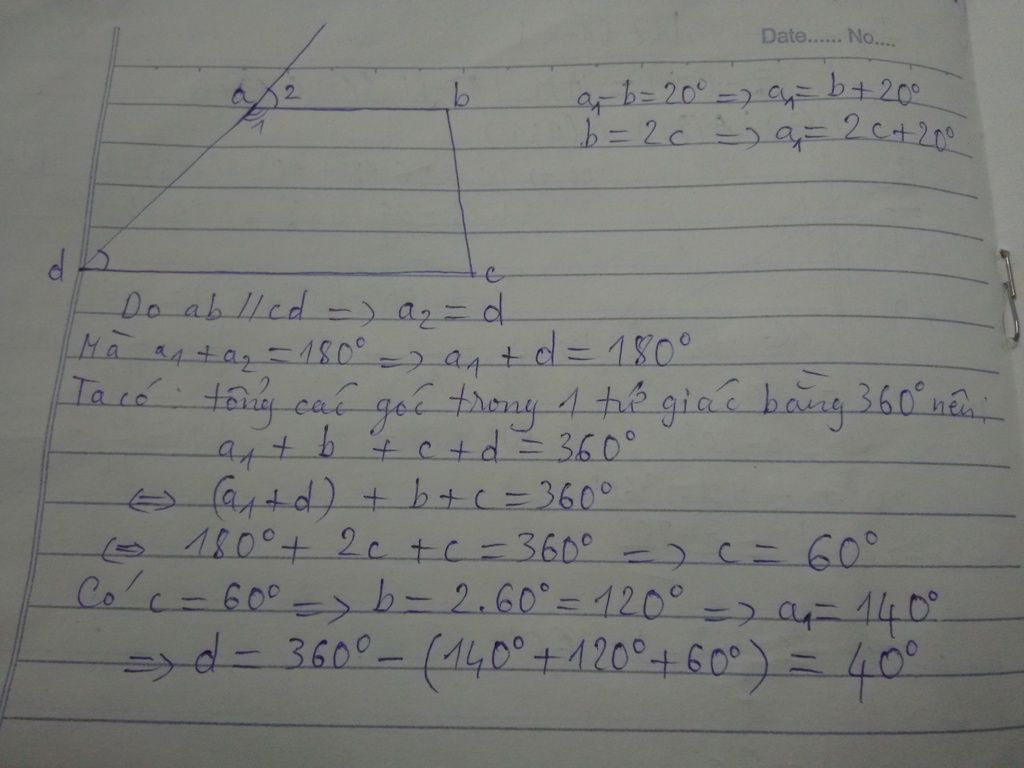 Date...... No....
a 2 b
1
a₁-b=20° => a₁= b+20°
b=2c => a₁= 2c+20°
d c
Do ab//cd => a₂ = d
Mà a₁+a₂=180° => a₁ + d = 180°
Ta có: tổng các góc trong 1 tứ giác bằng 360° nên:
a₁ + b + c + d = 360°
<=> (a₁+d) + b+c = 360°
<=> 180° + 2c + c = 360° => c = 60°
Có c = 60° => b = 2.60° = 120° => a₁= 140°
=> d = 360° - (140°+120°+60°) = 40°